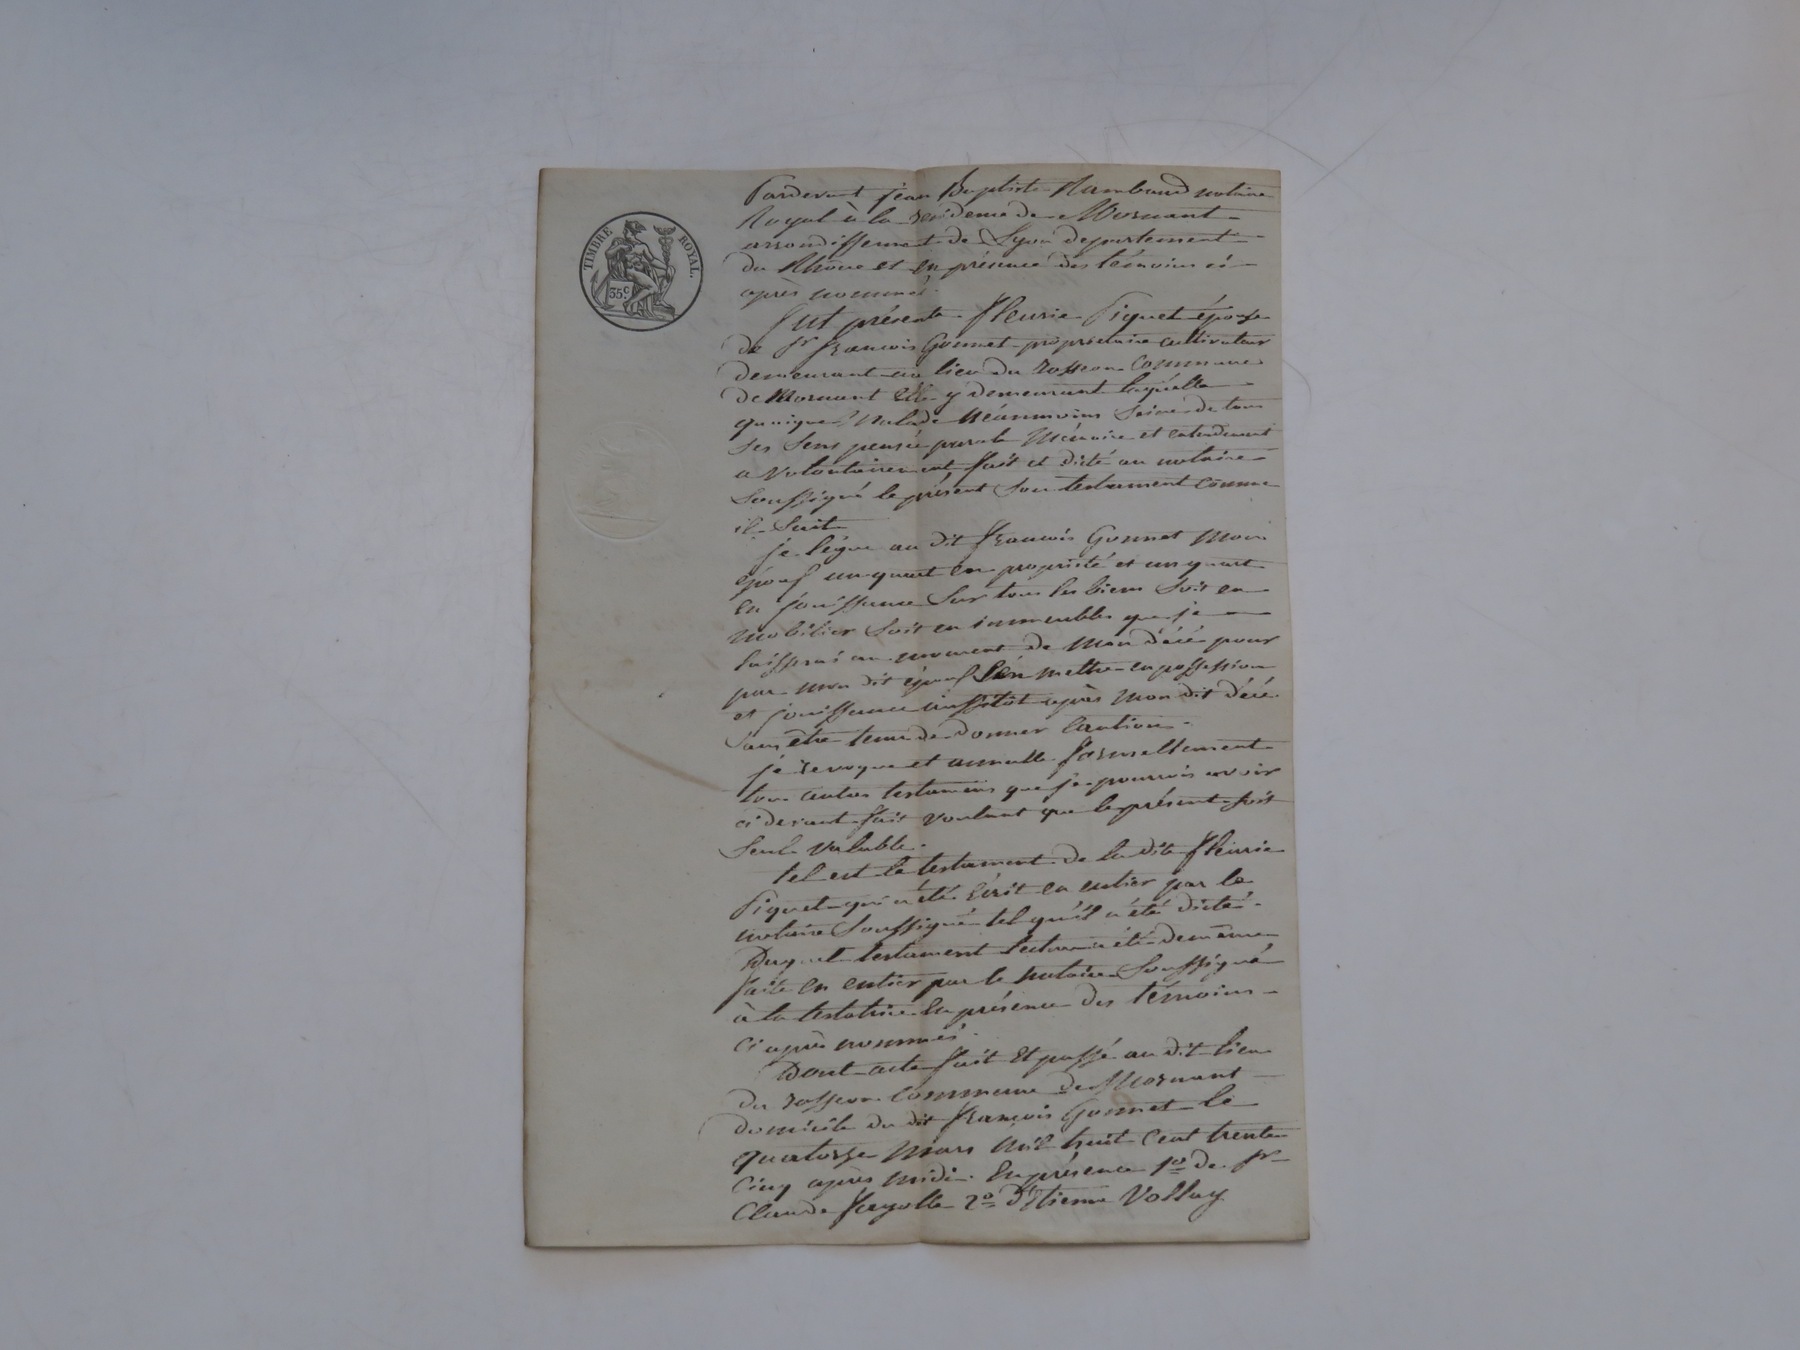 TIMBRE ROYAL.
35 c.
Pardevant jean Baptiste Rambaud notaire
Royal à la résidence de Mornant
arrondissement de Lyon departement
du Rhône et en présence des témoins ci
après nommés.
fut présente fleurie Piguet épouse
de Sr françois Gonnet propriétaire cultivateur
demeurant au lieu du rosseon Commune
de Mornant Elle y demeurant laquelle
quoique Malade Néanmoins Saine de tous
ses Sens pensée parole Mémoire et entendement
a Volontairement fait et dicté au notaire
Soussigné le présent Son testament comme
il Suit
je lègue au dit françois Gonnet Mon
époux un quart en propriété et un quart
en jouissance Sur tous les biens Soit en
Mobilier Soit en immeubles que je
laisserai au moment de Mon décé pour
par mon dit époux S'en mettre en possession
et jouissance aussitôt après Mon dit décé
Sans être tenu de donner Caution.
je revoque et annulle formellement
tous autres testamens que je pourrois avoir
ci devant fait voulant que le présent soit
Seul Valable.
tel est le testament de la dite fleurie
Piguet qui a été Ecrit en entier par le
notaire Soussigné tel qu'il a été dicté.
Duquel testament lecture a été de même
faite en entier par le notaire Soussigné
à la testatrice en présence des témoins
ci après nommés
Dont acte fait et passé au dit lieu
du rosseon Commune de Mornant
domicile du dit françois Gonnet le
quatorze Mars Mil huit Cent trente
Cinq après midi. En présence 1º de Sr
Claude fayolle 2º d'Etienne Vollay